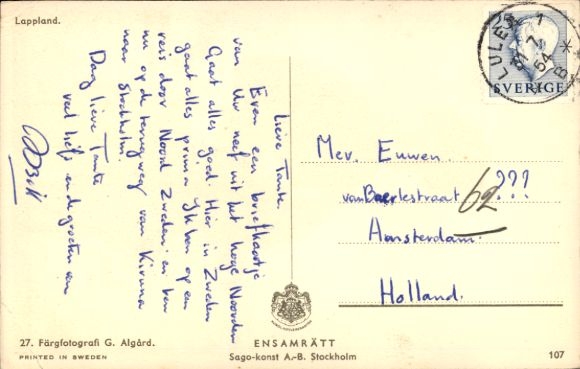 Lappland.
Lieve Tante.
Even een briefkaartje
van Uw neef uit het hoge Noorden
Gaat alles goed. Hier in Zweden
gaat alles prima. Ik ben op een
reis door Noord Zweden. en ben
nu op de terugweg van Kiruna
naar Stockholm.
Dag lieve Tante
veel liefs en de groeten van
LULEÅ 1
31 7 54
B
SVERIGE
Mev. Euwen.
van Baerlestraat 62 ???
Amsterdam.
Holland.
27. Färgfotografi G. Algård.
PRINTED IN SWEDEN
ENSAMRÄTT
Sago-konst A.-B. Stockholm
107